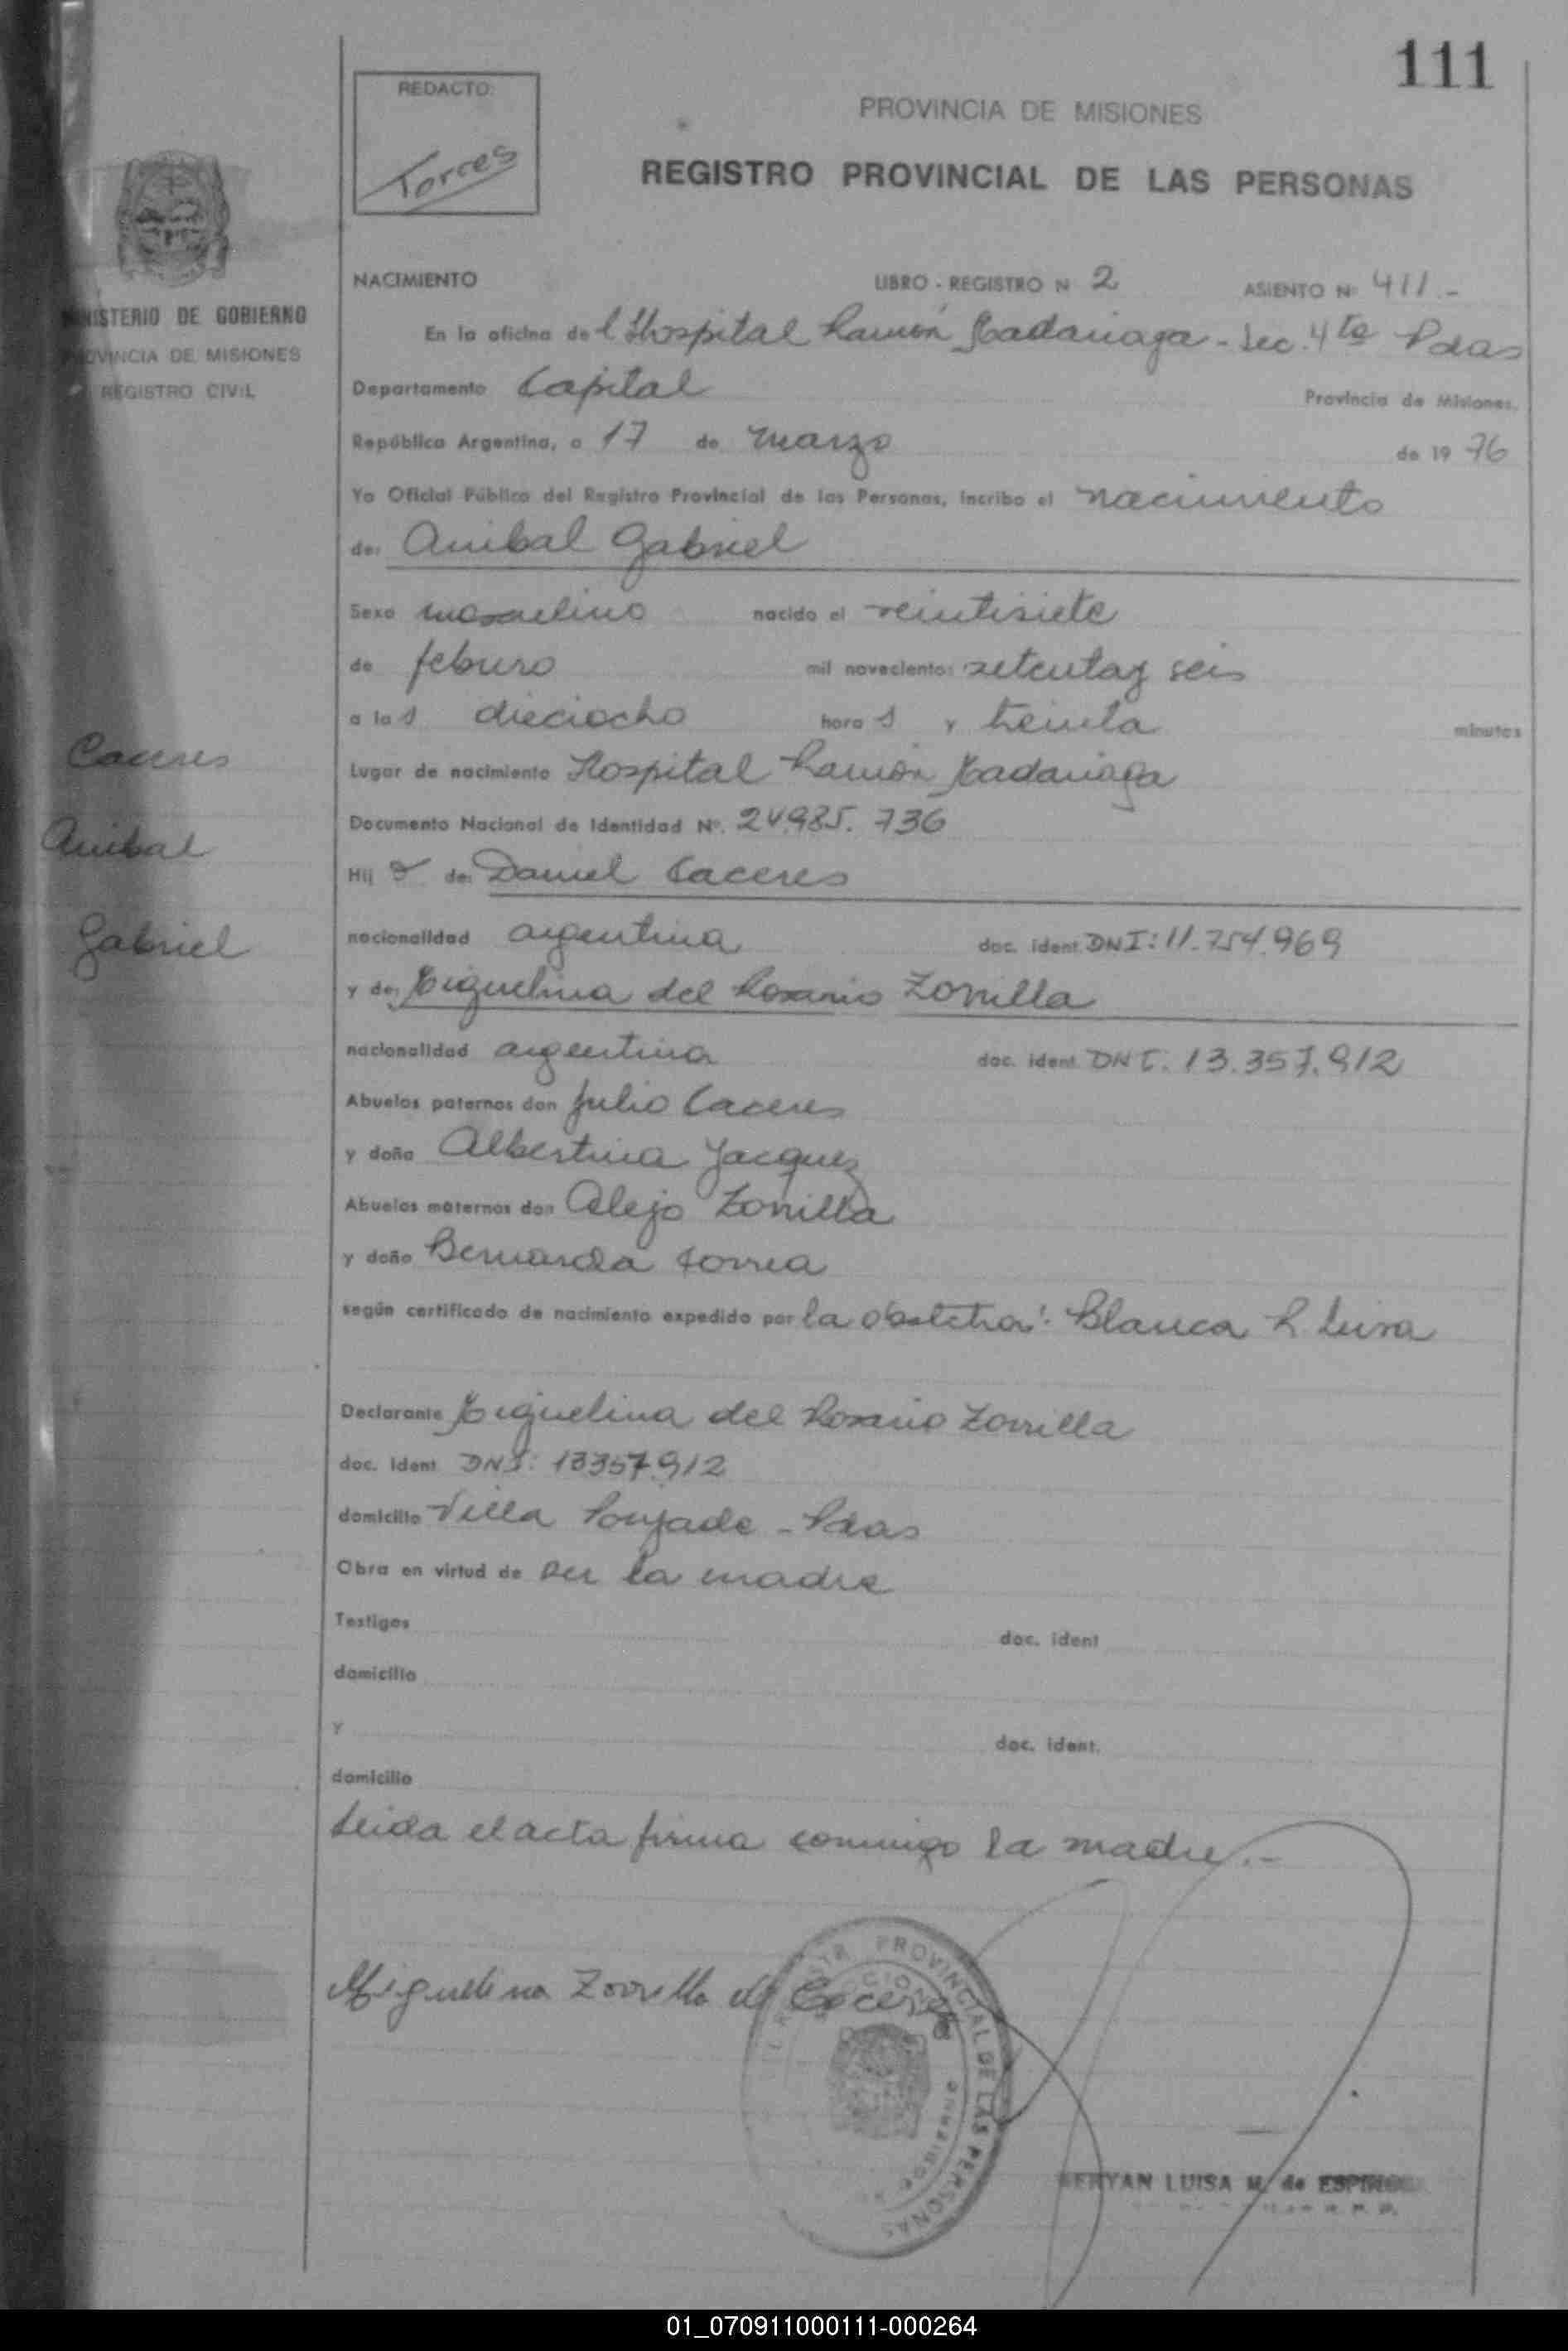 111
REDACTO:
Torres
PROVINCIA DE MISIONES
REGISTRO PROVINCIAL DE LAS PERSONAS
MINISTERIO DE GOBIERNO
PROVINCIA DE MISIONES
REGISTRO CIVIL
NACIMIENTO LIBRO - REGISTRO N 2 ASIENTO Nº 411.-
En la oficina del Hospital Ramón Madariaga - Sec. 4ta Pdas
Departamento Capital Provincia de Misiones,
República Argentina, a 17 de marzo de 1976
Yo Oficial Público del Registro Provincial de las Personas, incribo el nacimiento
de: Anibal Gabriel
Sexo masculino nacido el veintisiete
de febrero mil novecientos setenta y seis
a las dieciocho horas y treinta minutos
Caceres
Anibal
Gabriel
Lugar de nacimiento Hospital Ramón Madariaga
Documento Nacional de Identidad Nº. 24.985.736
Hijo de: Daniel Caceres
nacionalidad argentina doc. ident. DNI: 11.754.969
y de: Miguelina del Rosario Zorrilla
nacionalidad argentina doc. ident. DNI. 13.357.912
Abuelos paternos don Julio Caceres
y doña Albertina Jacquez
Abuelos maternos don Alejo Zorrilla
y doña Bernarda Correa
según certificado de nacimiento expedido por la obstetra: Blanca R.
Declarante Miguelina del Rosario Zorrilla
doc. ident. DNI: 13357.912
domicilio Villa Poujade - Pdas
Obra en virtud de ser la madre
Testigos doc. ident
domicilio
y doc. ident.
domicilio
Leida el acta firma conmigo la madre.-
Miguelina Zorrilla de Caceres
REGISTRO PROVINCIAL DE LAS PERSONAS
LUISA M. de
01_070911000111-000264